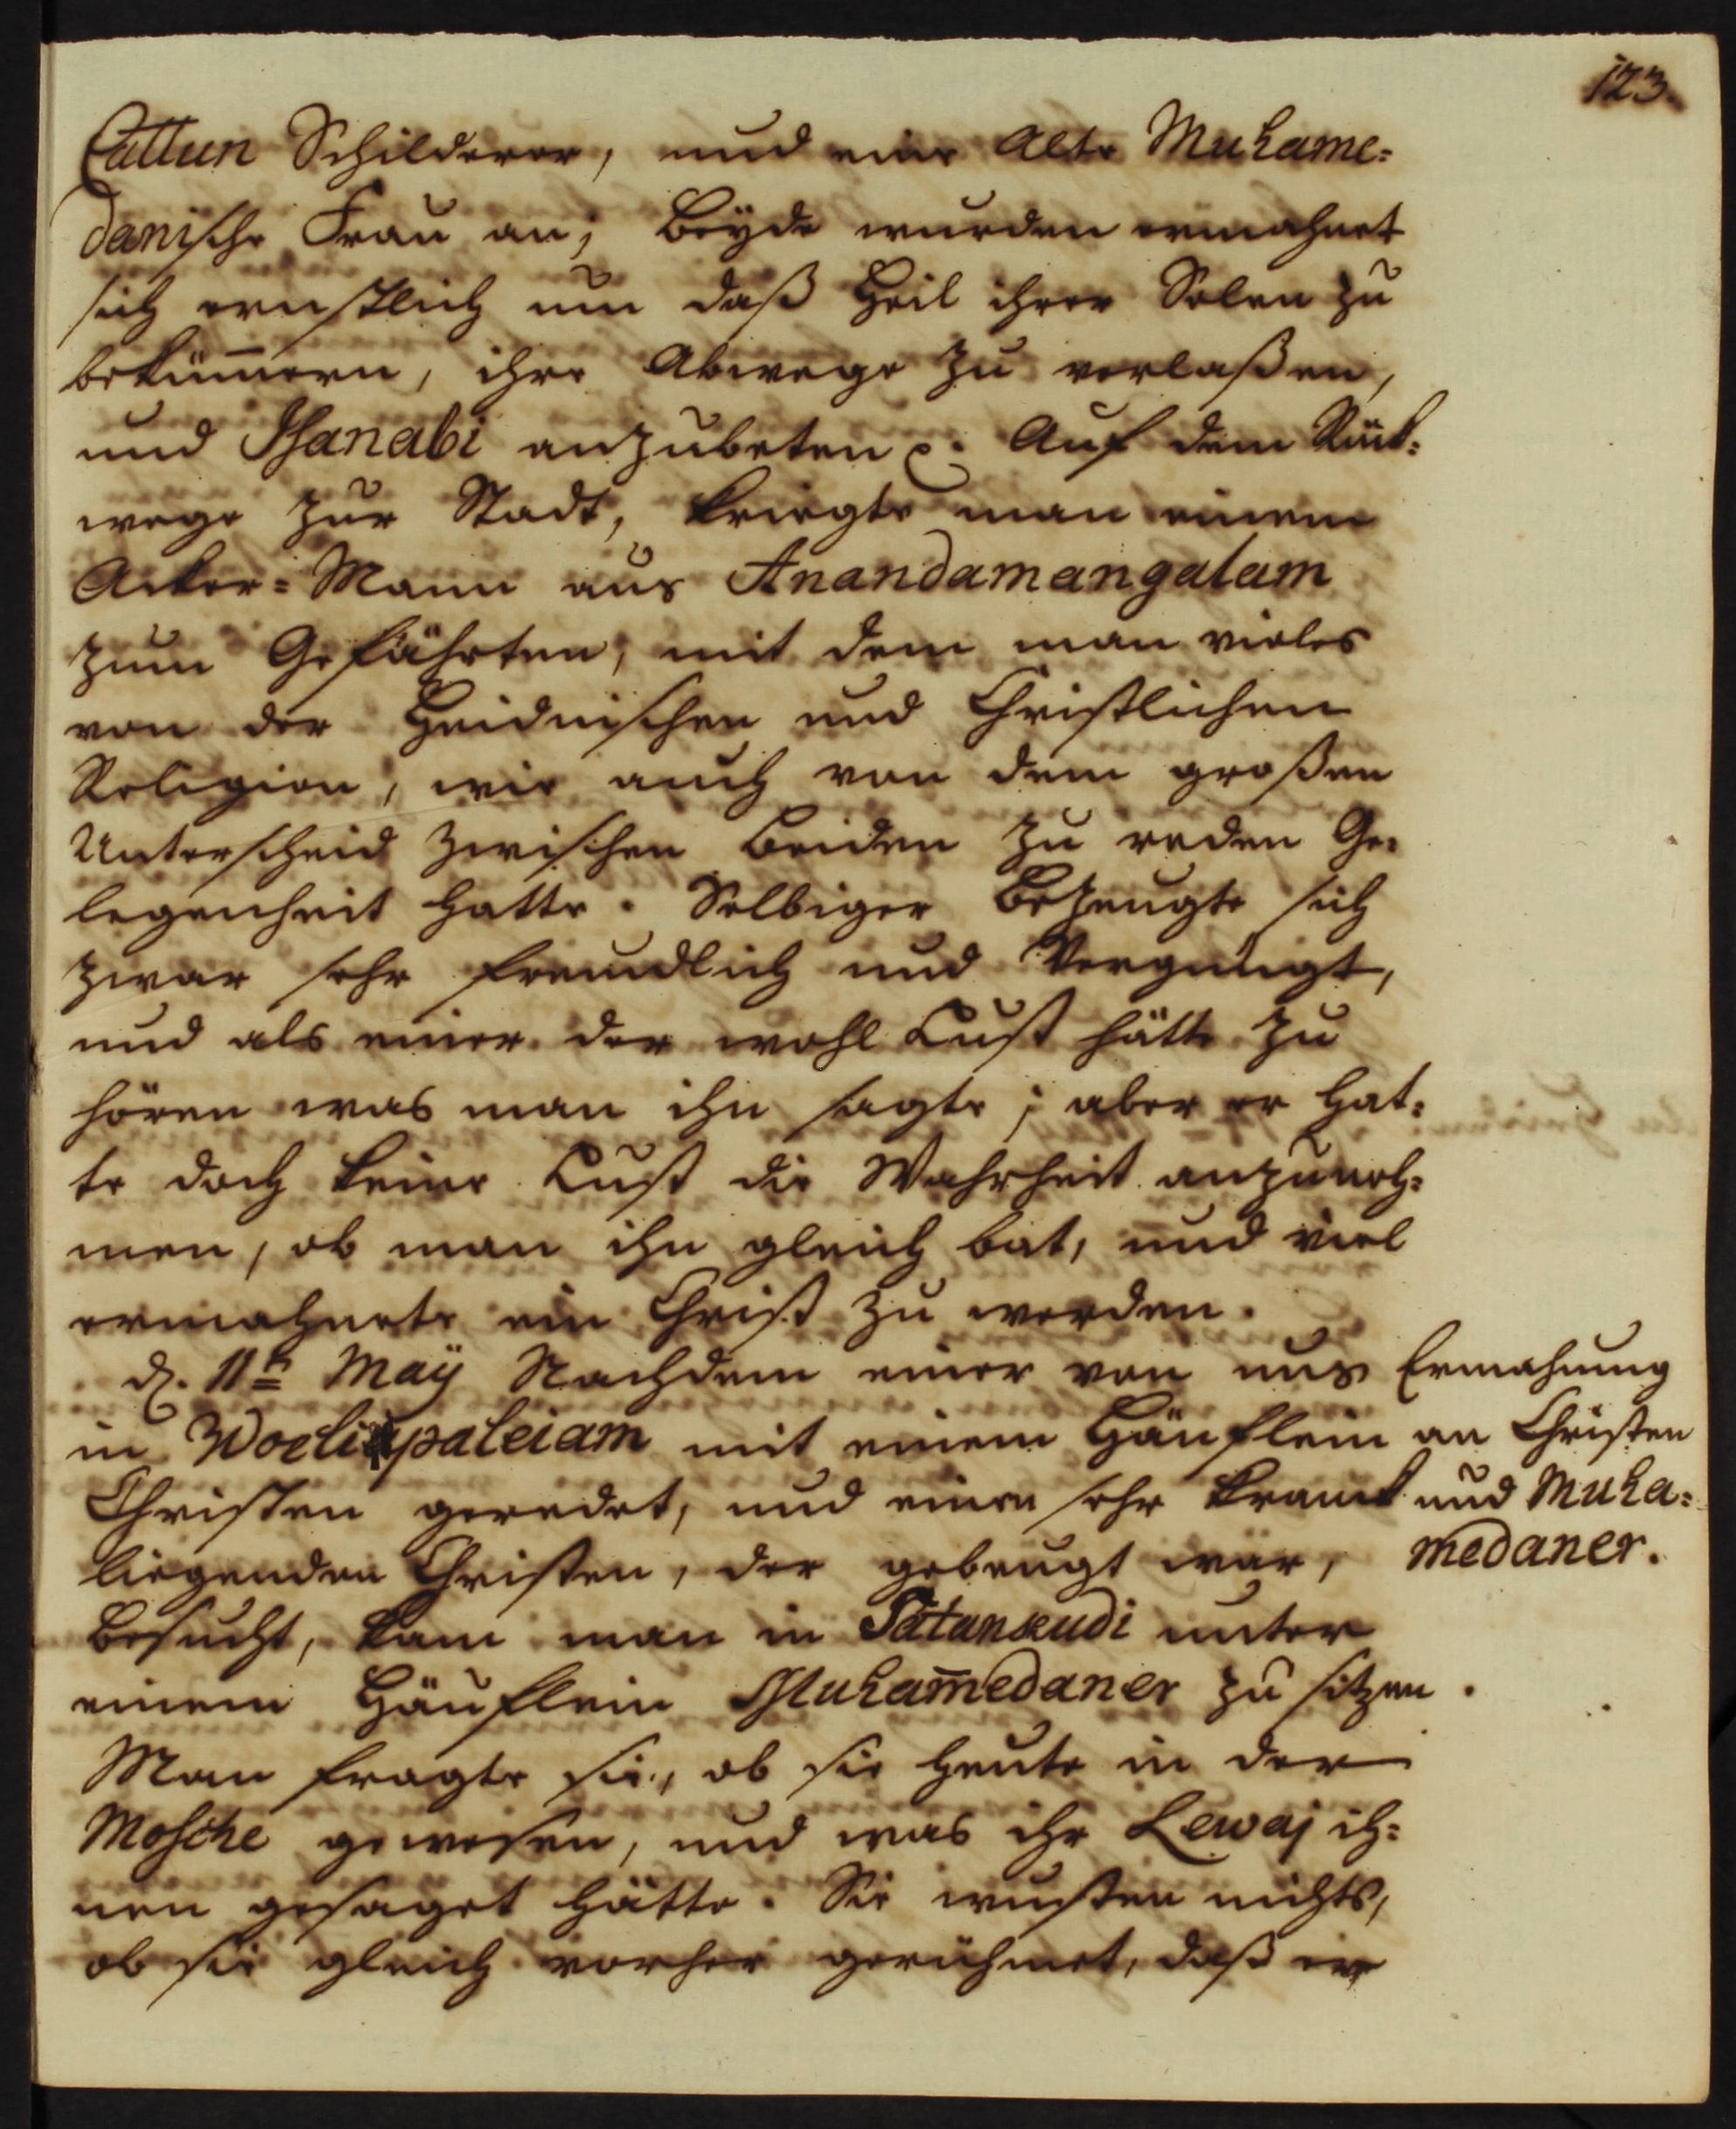 123.
Cattun Schilderer, und eine Alte Muhame-
danische Frau an; Beyde wurden ermahnet
sich ernstlich um daß Heil ihrer Selen zu
bekümm̄ern, ihre Abwege zu verlaßen,
und Isanabi anzubeten ꝛc. Auf dem Rück-
wege zur Stadt, kriegte man einem
Acker-Mann aus Anandamangalam
zum Gefährten, mit dem man vieles
von der Heidnischen und Christlichen
Religion, wie auch von dem großen
Unterscheid zwischen Beiden zu reden Ge-
legenheit hatte. Selbiger Bezeugte sich
zwar sehr freundlich und Vergnügt,
und als einer der wohl Lust hätte zu
hören was man ihn sagte; aber er hat-
te doch keine Lust die Wahrheit anzuneh-
men, ob man ihn gleich bat, und viel
ermahnete ein Christ zu werden.
d. 11t. Maÿ Nachdem einer von uns
in Woelipaleiam mit einem Häuflein
Christen geredet, und einen sehr kranck
liegenden Christen, der gebeugt war,
Besucht, kam man in Patanкudi unter
einem Häuflein Muham̄edaner zu sitzen.
Man fragte sie, ob sie heute in der
Mosche gewesen, und was ihr Lewaj ih-
nen gesaget hätte. Sie wusten nichts,
ob sie gleich vorher gerühmet, daß er
Ermahnung
an Christen
und Muha-
medaner.